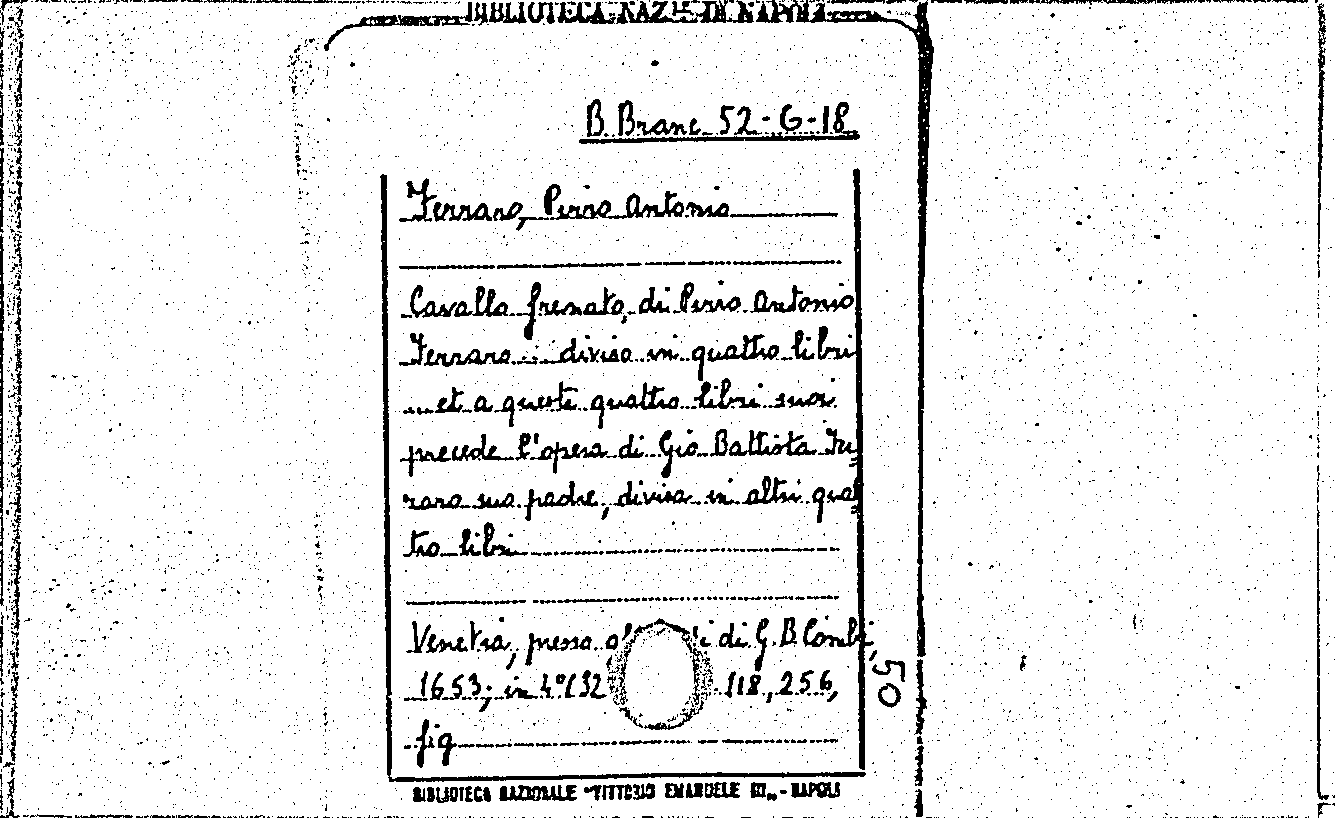 BIBLIOTECA NAZ.LE DI NAPOLI
B. Branc. 52-G-18
Ferraro, Pirro Antonio
Cavallo frenato, di Pirro Antonio
Ferraro ... diviso in quattro libri
... et a questi quattro libri suoi
precede l'opera di Gio Battista Fer
raro suo padre, divisa in altri quat
tro libri
Venetia, presso di G. B. Combi,
1653; in 4° (32 118, 256, 50
fig
BIBLIOTECA NAZIONALE "VITTORIO EMANUELE III" - NAPOLI